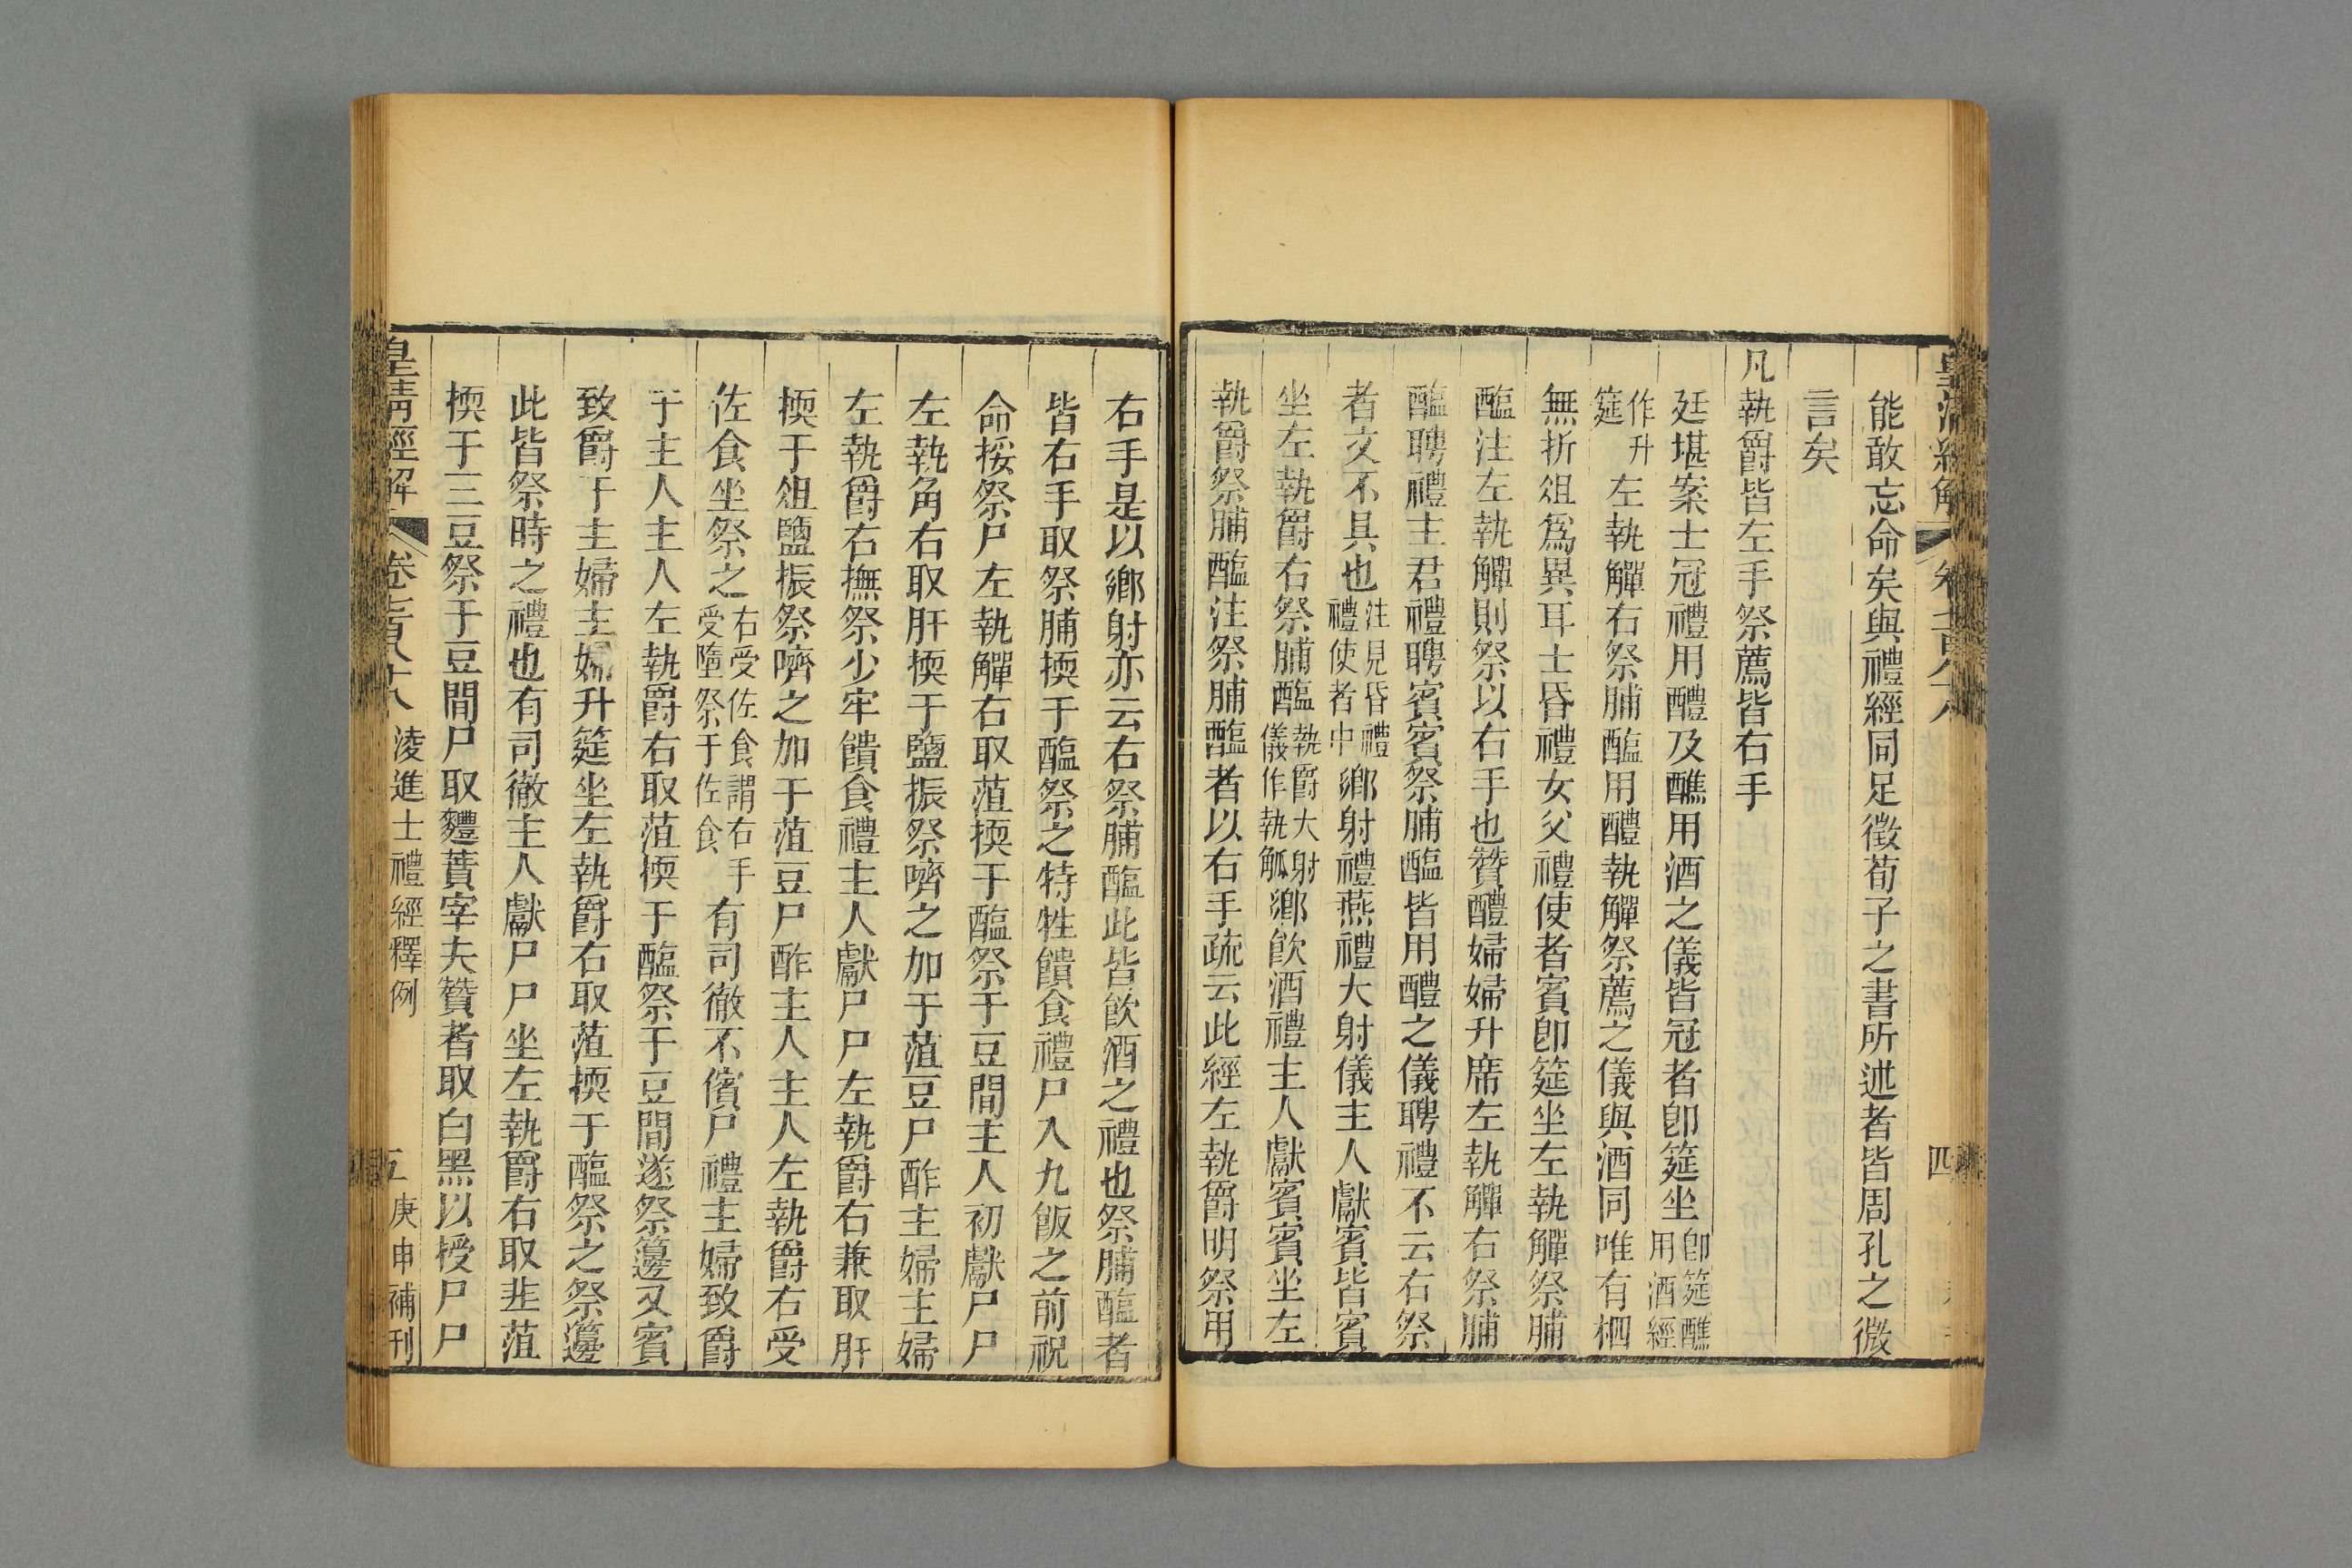 能敢忘命矣與禮經同足徵荀子之書所述者皆周孔之微
言矣
凡執爵皆左手祭薦皆右手
廷堪案士冠禮用醴及醮用酒之儀皆冠者卽筵坐卽筵醮用酒經
作升筵左執觶右祭脯醢用醴執觶祭薦之儀與酒同唯有栖
無折俎爲異耳士昏禮女父禮使者賓卽筵坐左執觶祭脯
醢注左執觶則祭以右手也贊醴婦婦升席左執觶右祭脯
醢聘禮主君禮聘賓賓祭脯醢皆用醴之儀聘禮不云右祭
者文不具也注見昏禮禮使者中鄉射禮燕禮大射儀主人獻賓皆賓
坐左執爵右祭脯醢執爵大射儀作執觚鄉飮酒禮主人獻賓賓坐左
執爵祭脯醢注祭脯醢者以右手疏云此經左執爵明祭用
右手是以鄉射亦云右祭脯醢此皆飮酒之禮也祭脯醢者
皆右手取祭脯擩于醢祭之特牲饋食禮尸入九飯之前祝
命挼祭尸左執觶右取菹擩于醢祭于豆間主人初獻尸尸
左執角右取肝擩于鹽振祭嚌之加于菹豆尸酢主婦主婦
左執爵右撫祭少牢饋食禮主人獻尸尸左執爵右兼取肝
擩于俎鹽振祭嚌之加于菹豆尸酢主人主人左執爵右受
佐食坐祭之右受佐食謂右手受墮祭于佐食有司徹不儐尸禮主婦致爵
于主人主人左執爵右取菹擩于醢祭于豆間遂祭籩又賓
致爵于主婦主婦升筵坐左執爵右取菹擩于醢祭之祭籩
此皆祭時之禮也有司徹主人獻尸尸坐左執爵右取韭菹
擩于三豆祭于豆間尸取麷蕡宰夫贊者取白黑以授尸尸
皇淸經解 卷七百八十八 淩進士禮經釋例 五 庚申補刊